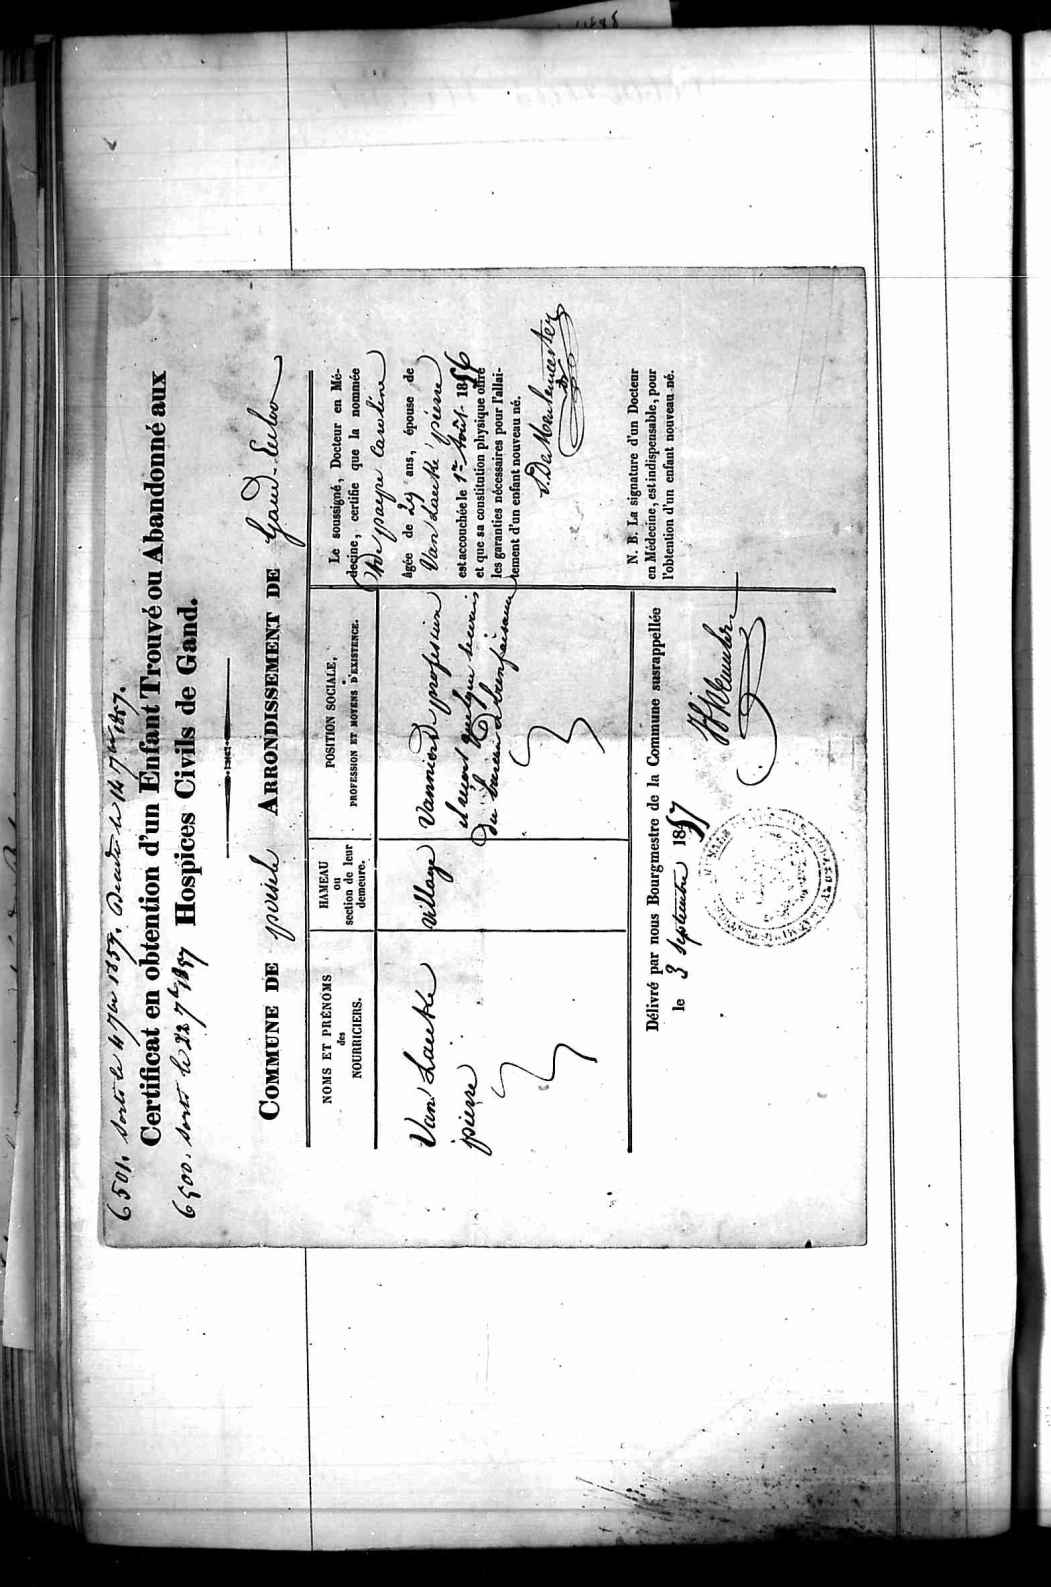 6501. Sorti le 4 7bre 1857. Décédé le 14 7bre 1857.
Certificat en obtention d'un Enfant Trouvé ou Abandonné aux
6500. Sorti le 22 7bre 1857 Hospices Civils de Gand.
COMMUNE DE ARRONDISSEMENT DE Gand-Eecloo
NOMS ET PRÉNOMS
des
NOURRICIERS.
HAMEAU
ou
section de leur
demeure.
POSITION SOCIALE,
PROFESSION ET MOYENS D'EXISTENCE.
Van Lancke
pierre
village
Vannier profession
et reçoit quelque secours
du bureau de bienfaisance
Le soussigné, Docteur en Mé-
decine, certifie que la nommée
De paepe Caroline
âgée de 29 ans, épouse de
Van Lancke pierre
est accouchée le 1er Août 1856
et que sa constitution physique offre
les garanties nécessaires pour l'allai-
tement d'un enfant nouveau né.
N. B. La signature d'un Docteur
en Médecine, est indispensable, pour
l'obtention d'un enfant nouveau né.
Délivré par nous Bourgmestre de la Commune susrappellée
le 3 Septembre 1857